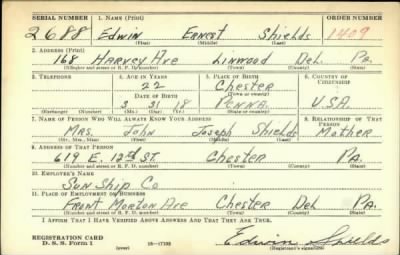 SERIAL NUMBER 1. NAME (Print) ORDER NUMBER
2688 Edwin Ernest Shields 1409
(First) (Middle) (Last)
2. ADDRESS (Print)
168 Harvey Ave Linwood Del Pa.
(Number and street or R. F. D. number) (Town) (County) (State)
3. TELEPHONE 4. AGE IN YEARS 5. PLACE OF BIRTH 6. COUNTRY OF CITIZENSHIP
22 Chester
DATE OF BIRTH (Town or county)
3 31 18 Penna. U.S.A.
(Exchange) (Number) (Mo.) (Day) (Yr.) (State or country)
7. NAME OF PERSON WHO WILL ALWAYS KNOW YOUR ADDRESS 8. RELATIONSHIP OF THAT PERSON
Mrs. John Joseph Shields Mother
(Mr., Mrs., Miss) (First) (Middle) (Last)
9. ADDRESS OF THAT PERSON
619 E. 12th St. Chester Pa.
(Number and street or R. F. D. number) (Town) (County) (State)
10. EMPLOYER'S NAME
Sun Ship Co
11. PLACE OF EMPLOYMENT OR BUSINESS
Front Morton Ave Chester Del Pa.
(Number and street or R. F. D. number) (Town) (County) (State)
I AFFIRM THAT I HAVE VERIFIED ABOVE ANSWERS AND THAT THEY ARE TRUE.
REGISTRATION CARD
D. S. S. Form 1 (over) 16—17105 Edwin Shields
(Registrant's signature)